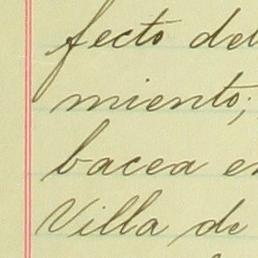 fecto del
miento;
bacea en
Villa de